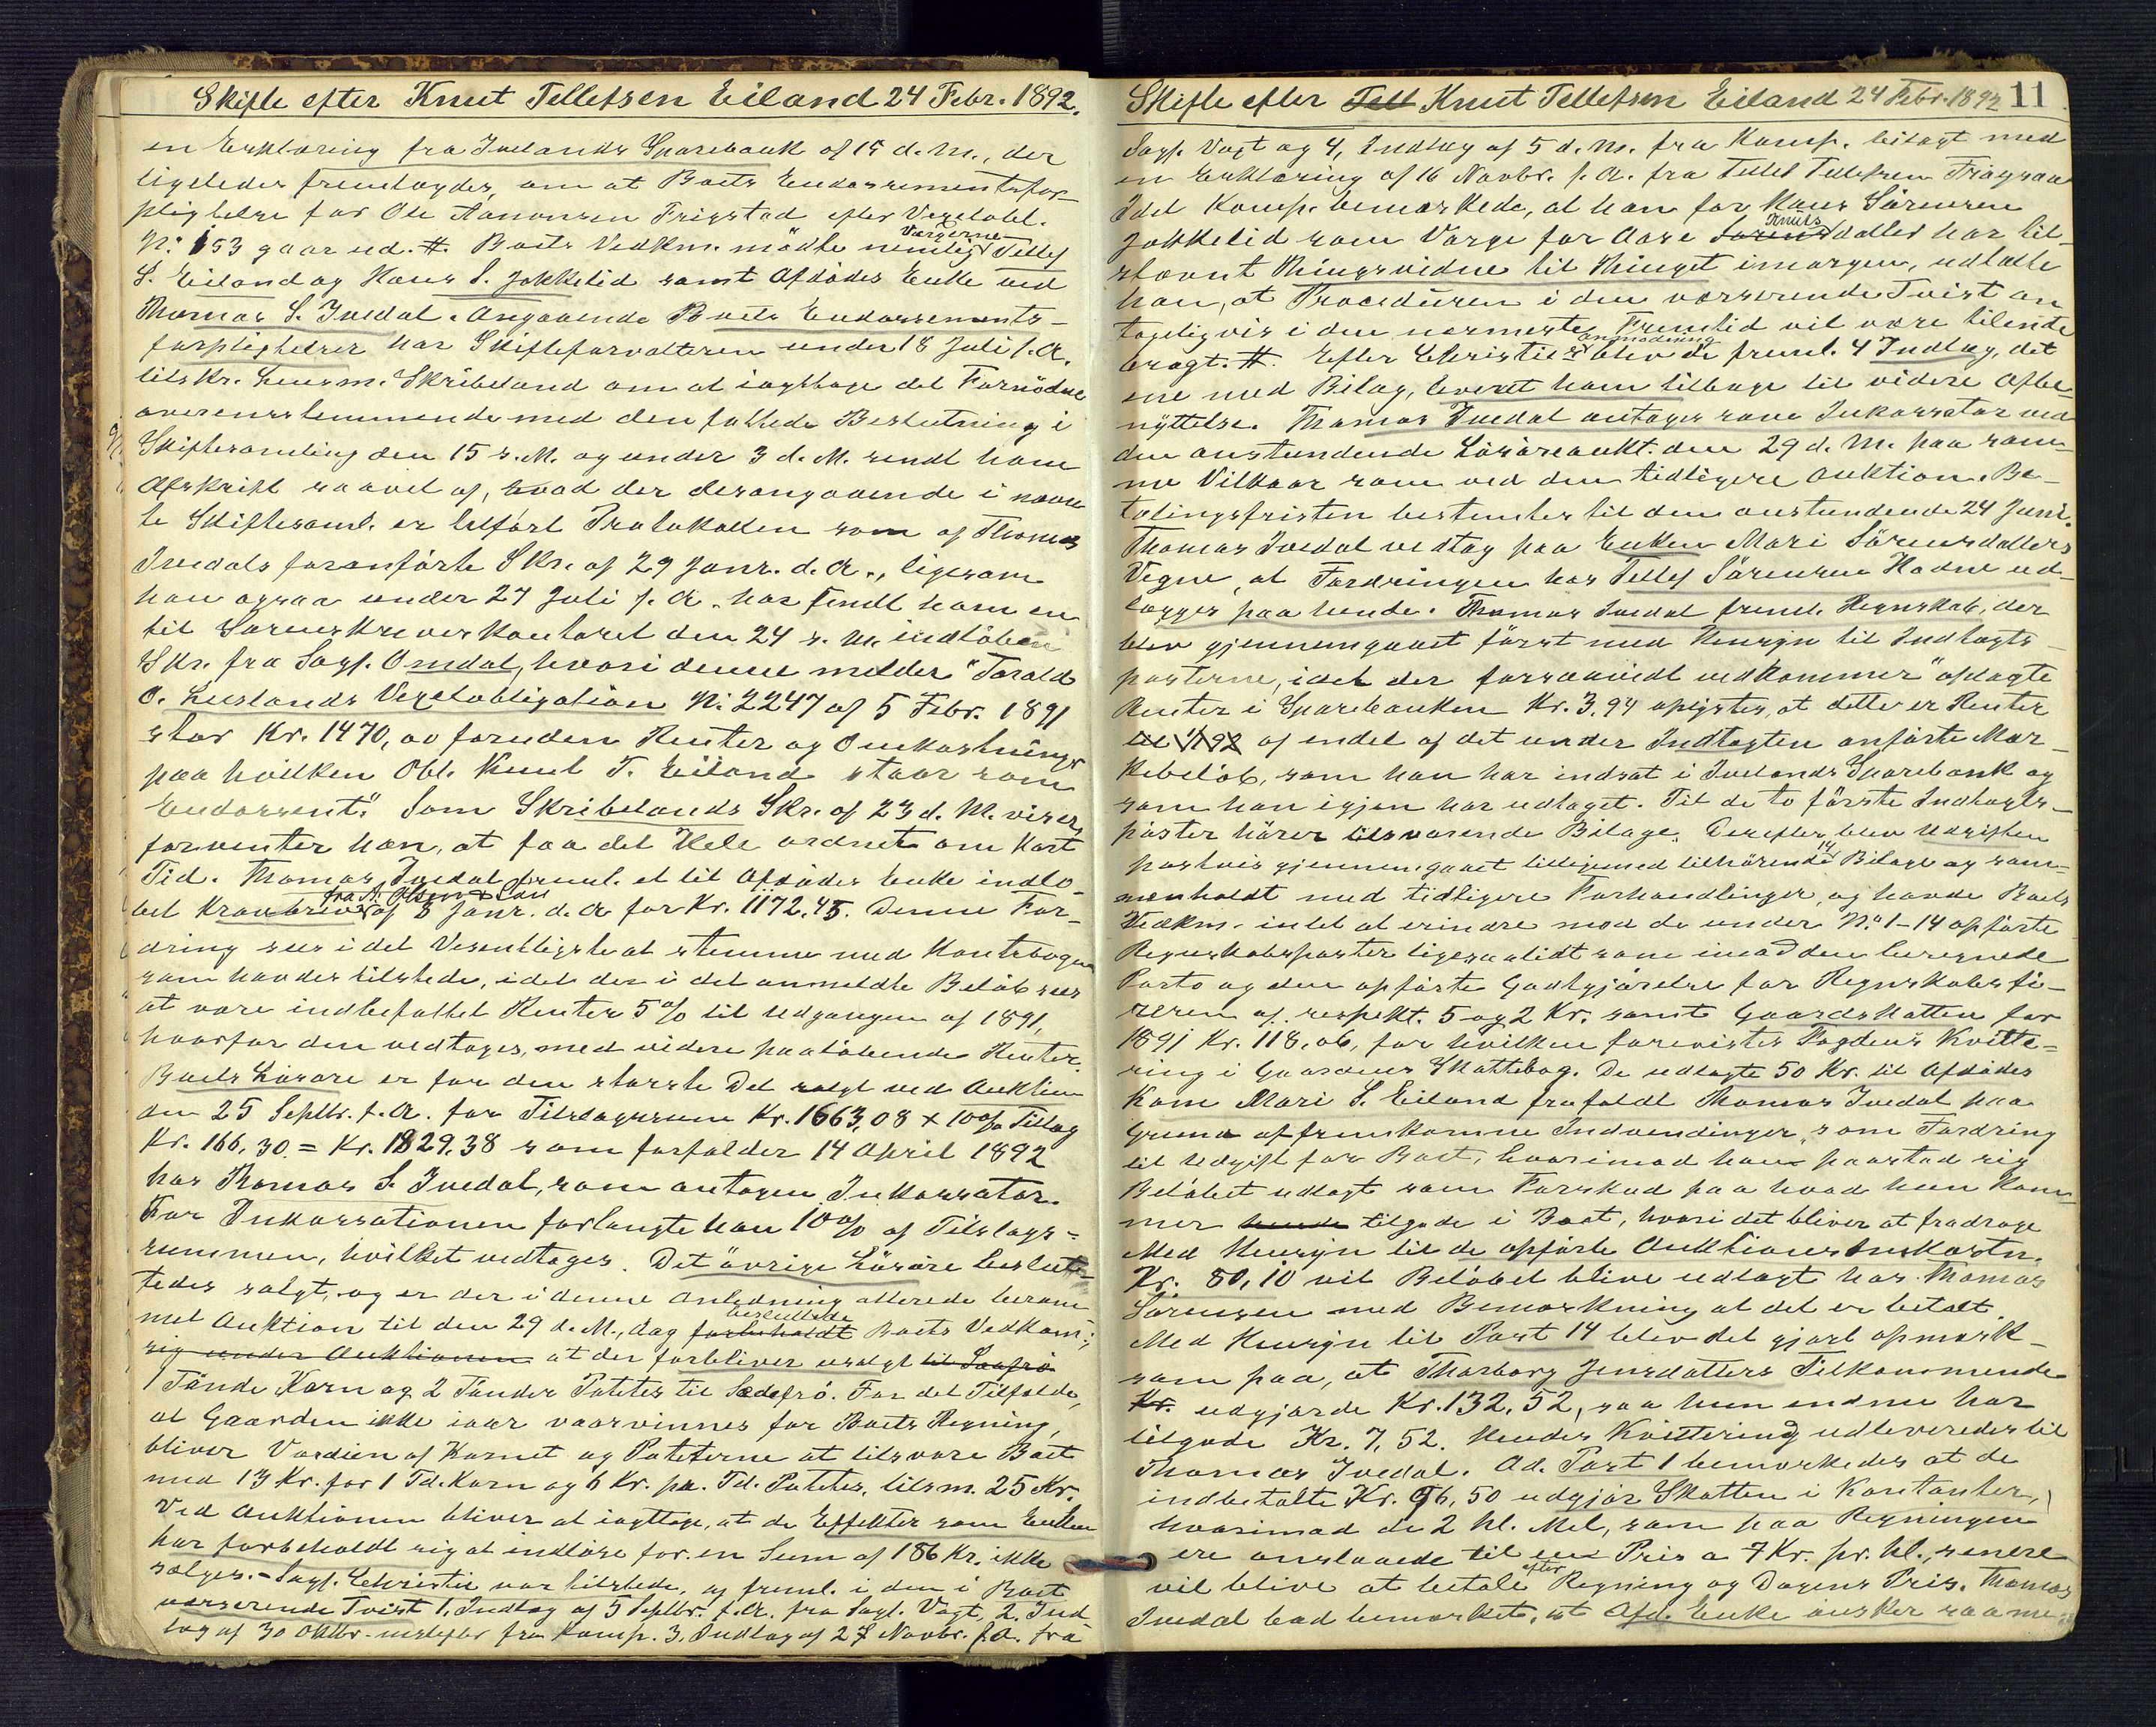 Skifte efter Knut Tellefsen Eiland 24 Febr. 1892.
en Erklæring fra Ivelands Sparebank af 15 d. M., der
ligeledes fremlagdes, om at Boets Endossementsfor-
pligtelse for Ole Aanonsen Frigstad efter Vexelobl.
N: 153 gaar ud. #. Boets Vedkm. mødte nemlig Værgerne Tellef
S. Eiland og Hans S. Jokkelid samt Afdødes Enke ved
Thomas S. Ivedal. Angaaende Boets Endossements-
forpligtelser har Skifteforvalteren under 18 Juli f. A.
tilskr. Lensm. Skribeland om at iagttage det Fornødne
overensstemmende med den fattede Beslutning i
Skiftesamling den 15 s. M. og under 3 d. M. sendt ham
Afskrift saavel af, hvad der desangaaende i nævn-
te Skiftesaml. er tilført Protokollen som af Thomas
Ivedals foranførte Skr. af 29 Janr. d. A., ligesom
han ogsaa under 27 Juli f. A. har sendt ham en
til Sorenskriverkontoret den 24 s. M. indløben
Skr. fra Sagf. Omdal, hvori denne melder "Torald
O. Luslands Vexelobligation N: 2247 af 5 Febr. 1891
stor Kr. 1470, oo foruden Renter og Omkostninger
paa hvilken Obl. Knut T. Eiland staar som
Endossent." Som Skribelands Skr. af 23 d. M. viser
forventer han, at faa det Hele ordnet om kort
Tid. Thomas Ivedal freml. et til Afdødes Enke indlø-
bet Kravbrev fra A. Olsen & Cars af 8 Janr. d. A for Kr. 1172.45. Denne For-
dring sees i det Væsentligste at stemme med Kontrabogen
som havdes tilstede, idet der i det anmeldte Beløb sees
at være indbefattet Renter 5% til Udgangen af 1891,
hvorfor den vedtoges, med videre paaløbende Renter.
Boets Løsøre er for den største Del solgt ved Auktion
den 25 Septbr. f. A. for Tilslagssum Kr. 1663,08 + 10% Tillæg
Kr. 166,30 = Kr. 1829.38 som forfalder 14 April 1892
hos Thomas S. Ivedal, som antagen Inkassator.
For Inkassationen forlangte han 10% af Tilslags-
summen, hvilket vedtoges. Det øvrige Løsøre beslut-
tedes solgt, og er der i denne Anledning allerede beram-
met Auktion til den 29 d. M., dog besluttede forbeholdt Boets Vedkom:,
sig under Auktionen at der forbliver usolgt til Saafrø
1 Tønde Korn og 2 Tønder Poteter til Sædefrø. For det Tilfælde,
at Gaarden ikke iaar vaarvinnes for Boets Regning,
bliver Værdien af Kornet og Poteterne at tilsvare Boet
med 13 Kr. for 1 Td. Korn og 6 Kr. pr. Td. Poteter, tilsm. 25 Kr.
Ved Auktionen bliver at iagttage, at de Effekter som Enken
har forbeholdt sig at indløse for en Sum af 186 Kr. ikke
sælges. - Sagf. Christie var tilstede, og freml. i den i Boet
værserende Tvist 1, Indlæg af 5 Septbr. f. A. fra Sagf. Vogt, 2. Ind-
læg af 30 Oktbr. næstefter fra Komp. 3. Indlæg af 27 Novbr. f. A. fra
Skifte efter Tell Knut Tellefsen Eiland 24 Febr. 1892 11
Sagf. Vogt og 4, Indlæg af 5 d. M. fra Komp. bilagt med
en Erklæring af 16 Novbr. f. A. fra Tellef Tellefsen
Idet Komp. bemærkede, at han for Hans Sørensen
Jokkelid som Værge for Aase Sørens Knuts datter har til-
stævnt Thingsvidne til Thinget imorgen, udtalte
han, at Proceduren i den værserende Tvist an-
tageligvis i den nærmeste Fremtid vil være tilende-
bragt. #. Efter Christies anmodning blev de freml. 4 Indlæg, det
ene med Bilag, leveret ham tilbage til videre Afbe-
nyttelse. Thomas Ivedal antoges som Inkassator ved
den anstundende Løsøreaukt. den 29 d. M. paa sam-
me Vilkaar som ved den tidligere Auktion. Be-
talingsfristen bestemtes til den anstundende 24 Juni.
Thomas Ivedal vedtog paa Enken Mari Sørensdatters
Vegne, at Fordringen hos Tellef Sørensen Hodne ud-
lægges paa hende. Thomas Ivedal freml. Regnskab, der
blev gjennemgaaet først med Hensyn til Indtægts-
posterne, idet der forsaavidt vedkommer "opdagte
Renter i Sparebanken Kr. 3.94 oplystes, at dette er Renter
til 1/1 92 af endel af det under Indtægten anførte Mar-
kebeløb, som han har indsat i Ivelands Sparebank og
som han igjen har udtaget. Til de to første Indtægts-
poster hører tilsvarende Bilage. Derefter blev Udgiften
postvis gjennemgaaet tilligemed tilhørende 14 Bilage og sam-
menholdt med tidligere Forhandlinger, og havde Boets
Vedkm. intet at erindre mod de under N: 1-14 opførte
Regnskabsposter ligesaalidt som imod den beregnede
Porto og den opførte Godtgjørelse for Regnskabsfø-
reren af respekt. 5 og 2 Kr. samt Gaardskatten for
1891 Kr. 118,06, for hvilken forevistes Fogdens Kvitte-
ring i Gaardens Skattebog. De udlagte 50 Kr. til Afdødes
Kone Mari S. Eiland frafaldt Thomas Ivedal paa
Grund af fremkomne Indvendinger, som Fordring
til Udgift for Boet, hvorimod han paastod sig
Beløbet udlagt som Forskud paa hvad hun kom-
mer hende tilgode i Boet, hvori det bliver at fradrage
Med Hensyn til de opførte Auktionsomkostn.
Kr. 80,10 vil Beløbet blive udlagt hos Thomas
Sørensen med Bemærkning at det er betalt.
Med Hensyn til Post 14 blev det gjort opmærk-
som paa, at Thorborg Jensdatters Tilkommende
Kr. udgjorde Kr. 132.52, saa hun endnu har
tilgode Kr. 7,52. Hendes Kvittering udleveredes til
Thomas Ivedal. Ad. Post 1 bemærkedes at de
indbetalte Kr. 96,50 udgjør Skatten i Kontanter,
hvorimod de 2 hl. Mel, som paa Regningen
ere anslaaede til en Pris a 7 Kr. pr. hl., senere
vil blive at betale efter Regning og Dagens Pris. Thomas
Ivedal bad bemærket, at Afd. Enke ønsker saame-